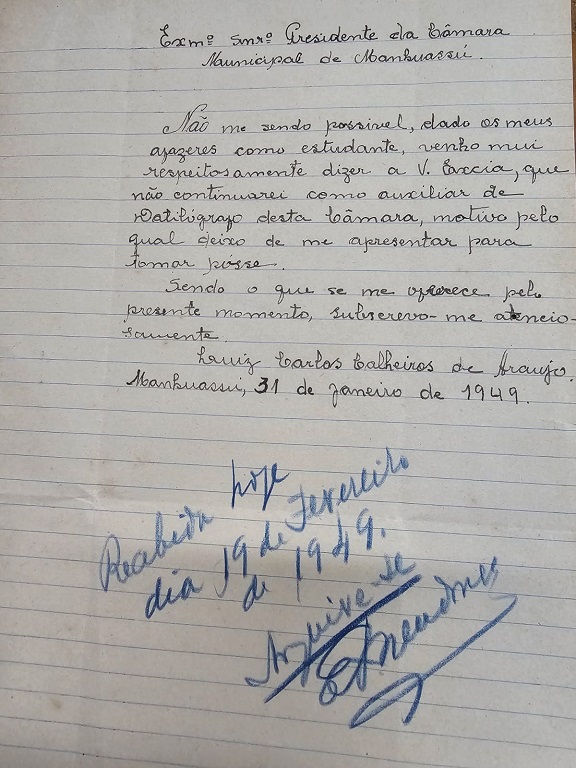 Exmº Snrº Presidente da Câmara
Municipal de Manhuassú.
Não me sendo possivel, dado os meus
afazeres como estudante, venho mui
respeitosamente dizer a V. Excia, que
não continuarei como auxiliar de
Datilógrafo desta Câmara, motivo pelo
qual deixo de me apresentar para
tomar posse.
Sendo o que se me oferece pelo
presente momento, subscrevo-me atencio-
samente.
Luiz Carlos Calheiros de Araujo.
Manhuassú, 31 de janeiro de 1949.
Recebida hoje
dia 19 de Fevereiro
de 1949.
Arquive-se